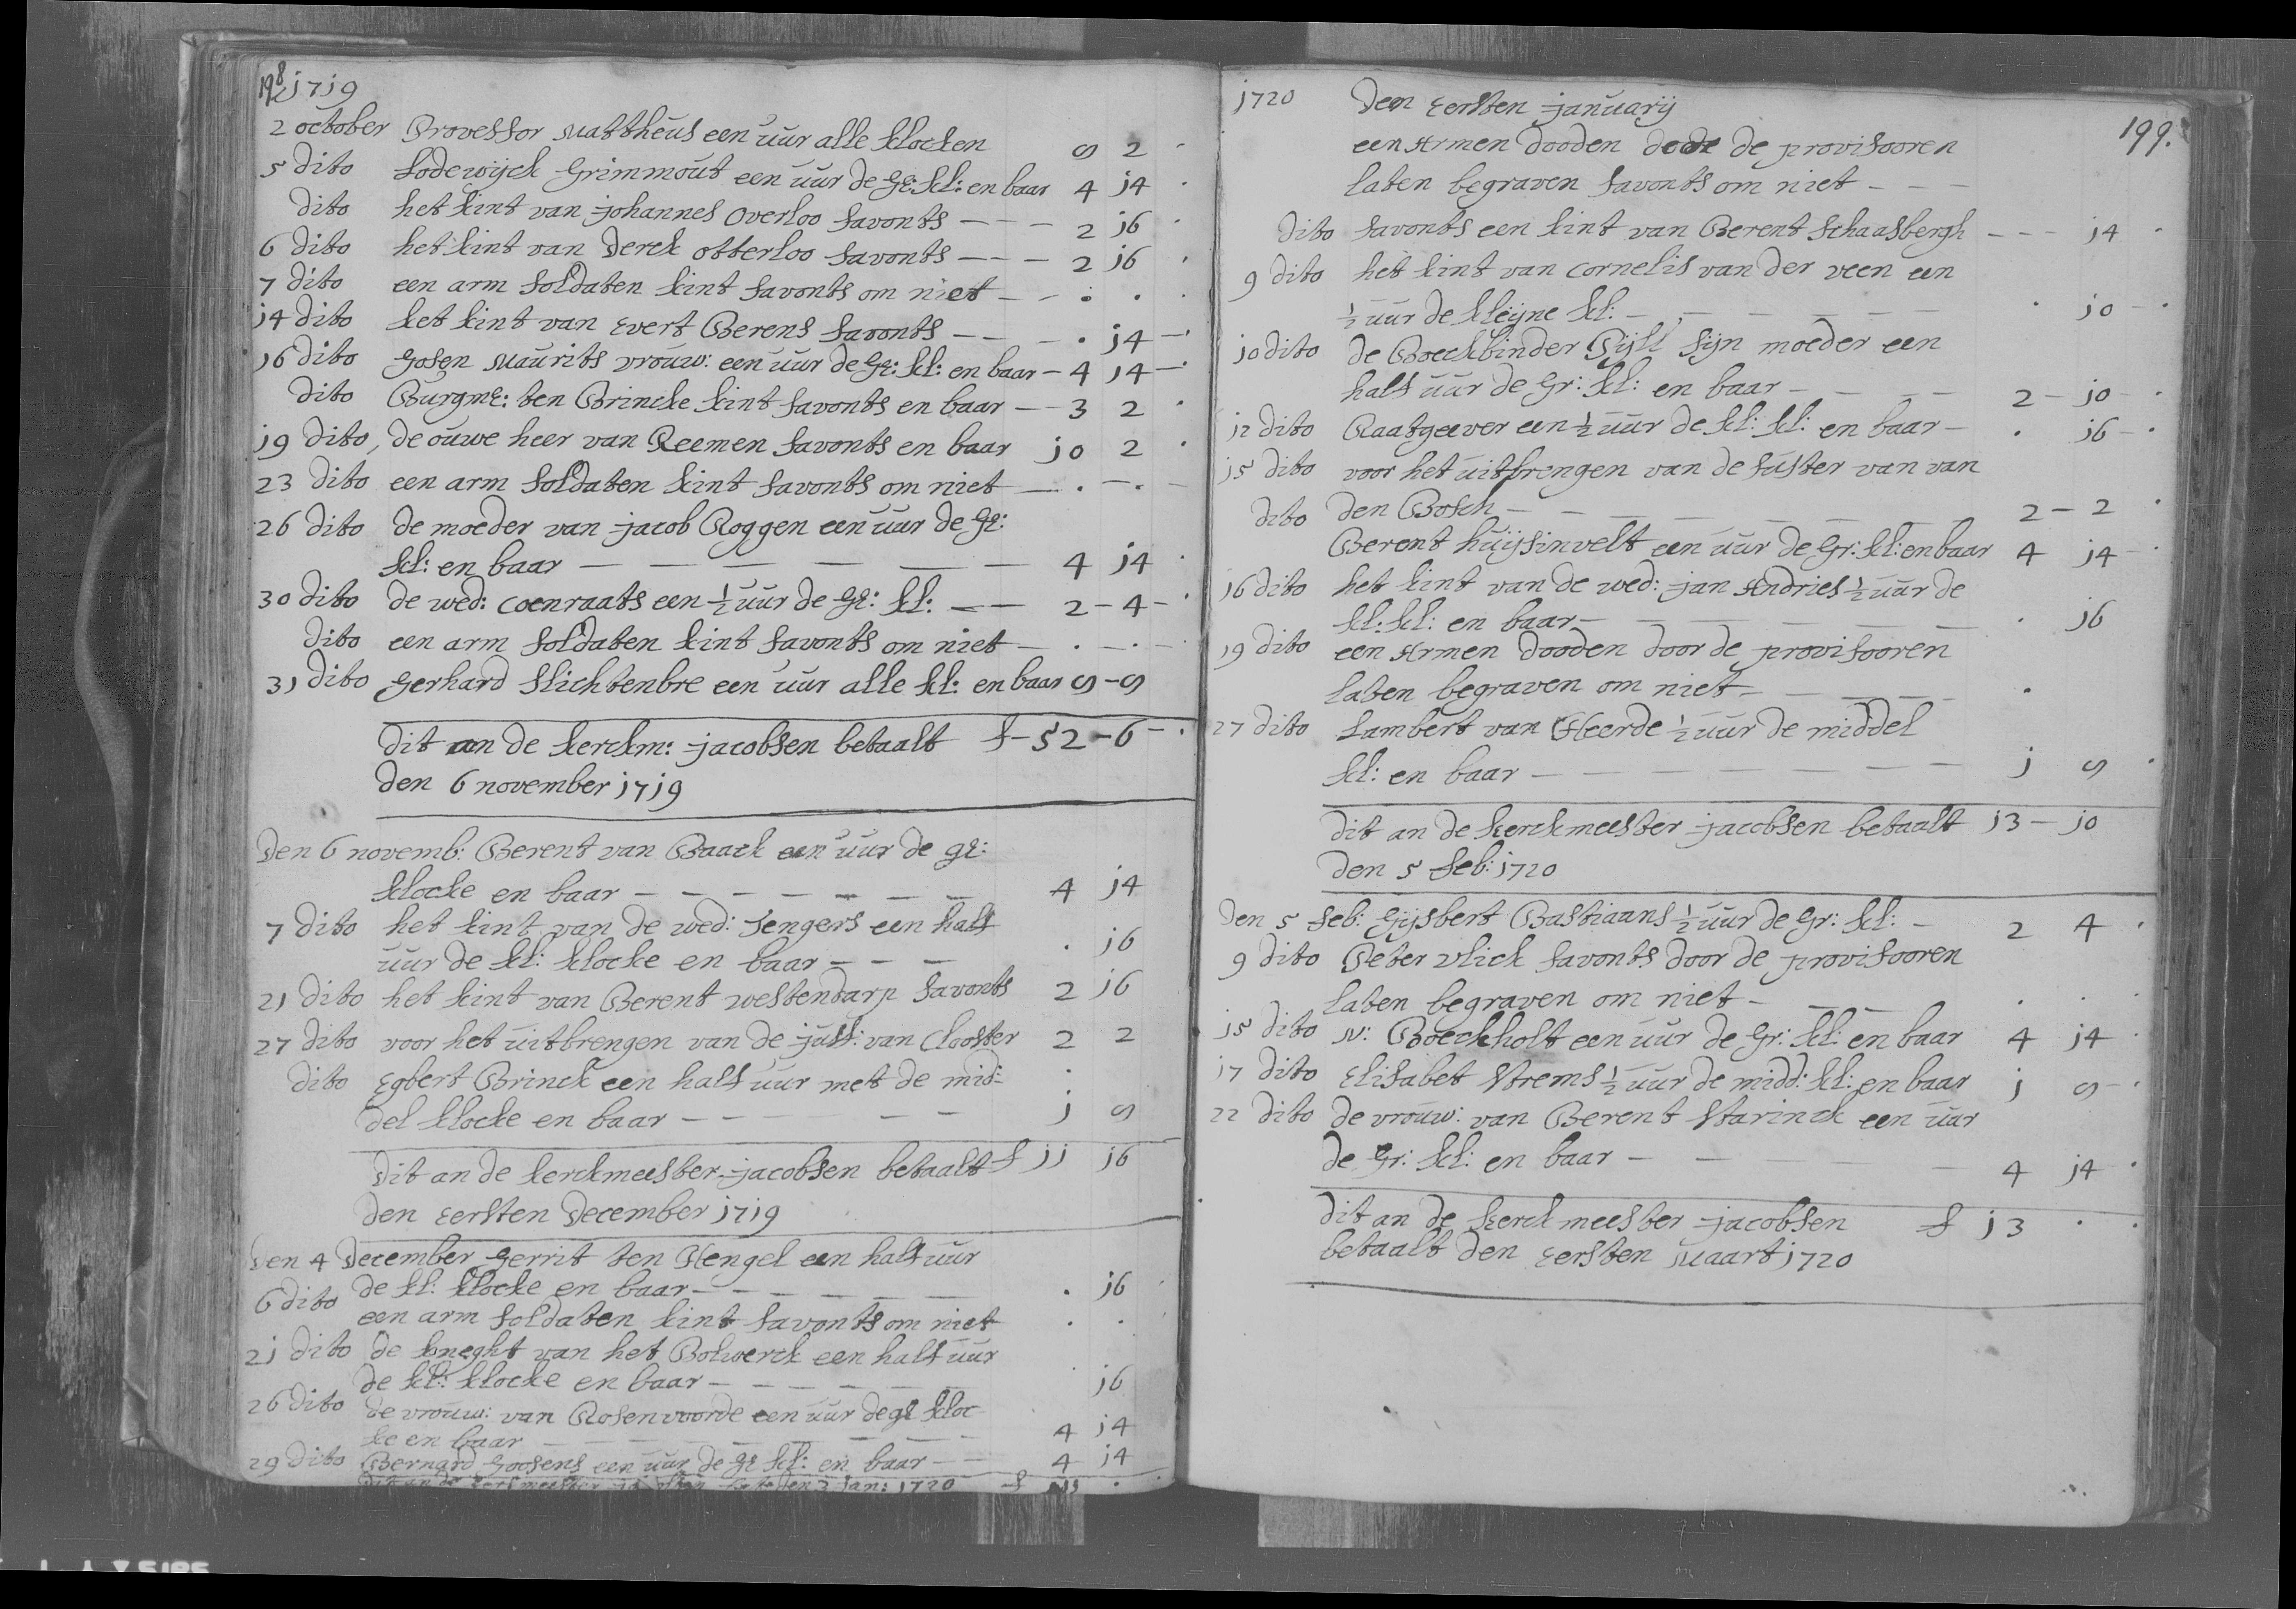 198 1719
2 october Provessor Mattheus een uur alle klocken 9 2
5 dito Lodewijck Grimmout een uur de Gr: kl: en baar 4 14
dito het kint van Johannes Overloo savonts - - - 2 16
6 dito het kint van Derck otterloo savonts - - - 2 16
7 dito een arm soldaten kint savonts om niet - - . .
14 dito het kint van Evert Berens savonts - - - . 14
16 dito Gosen Maurits vrouw: een uur de Gr: kl: en baar - 4 14
dito Burgmr: ten Brincke kint savonts en baar - 3 2
19 dito, de ouwe heer van Reemen savonts en baar 10 2
23 dito een arm soldaten kint savonts om niet - . - . -
26 dito de moeder van Jacob Roggen een uur de Gr:
kl: en baar - - - - - - 4 14
30 dito de wed: Coenraats een ½ uur de Gr: kl: - - 2 - 4 -
dito een arm soldaten kint savonts om niet - . - . -
31 dito Gerhard Slichtenbre een uur alle kl: en baar 9 - 9
Dit an de kerckm: Jacobsen betaalt f - 52 - 6 -
den 6 november 1719
Den 6 novemb: Berent van Baack een uur de gr:
klocke en baar - - - - - - - 4 14
7 dito het kint van de wed: Jengers een half
uur de kl: klocke en baar - - - . 16
21 dito het kint van Berent westendarp savonts 2 16
27 dito voor het uitbrengen van de juff: van Clooster 2 2
dito Egbert Brinck een half uur met de mid-
del klocke en baar - - - - - 1 9
Dit an de kerckmeester Jacobsen betaalt f 11 16
den Eersten December 1719
Den 4 December Gerrit ten Hengel een half uur
de kl: klocke en baar - - - - - - . 16
6 dito een arm soldaten kint savonts om niet . .
21 dito de kneght van het Bolwerck een half uur
de kl: klocke en baar - - - - - - . 16
26 dito de vrouw: van Rosenvoorde een uur de gr kloc
ke en baar - - - - - - - 4 14
29 dito Bernard Goosens een uur de gr kl: en baar - - 4 14
Dit an de kerckmeester Jacobsen den 2 Jan: 1720 f 11 .
1720 Den Eersten Januarij 199.
een Armen dooden de provisooren
laten begraven savonts om niet - - -
dito savonts een kint van Berent Schaasbergh - - - 14
9 dito het kint van Cornelis van der veen een
½ uur de kleijne kl: - - - - - . 10 -
10 dito de Boeckbinder Pijll sijn moeder een
half uur de Gr: kl: en baar - - - - 2 - 10
12 dito Raatgeever een ½ uur de kl: kl: en baar - . 16 -
15 dito voor het uitbrengen van de suster van van
den Bosch - - - - - - - 2 - 2
dito Berent huijsinvelt een uur de Gr: kl: en baar 4 14 -
16 dito het kint van de wed: Jan Andries ½ uur de
kl: kl: en baar - - - - - - . 16
19 dito een Armen dooden door de provisooren
laten begraven om niet - - - - .
27 dito Lambert van Heerde ½ uur de middel
kl: en baar - - - - - - - 1 9
Dit an de kerckmeester Jacobsen betaalt 13 - 10
den 5 feb: 1720
Den 5 feb: Gijsbert Bastiaans ½ uur de Gr: kl: - 2 4
9 dito Peter Vlick savonts door de provisooren
laten begraven om niet - - - . .
15 dito N: Boeckholt een uur de Gr: kl: en baar 4 14
17 dito Elisabet Strems ½ uur de midd: kl: en baar 1 9 -
22 dito de vrouw: van Berent Starinck een uur
de Gr: kl: en baar - - - - 4 14
Dit an de kerckmeester Jacobsen f 13 .
betaalt den Eersten Maart 1720